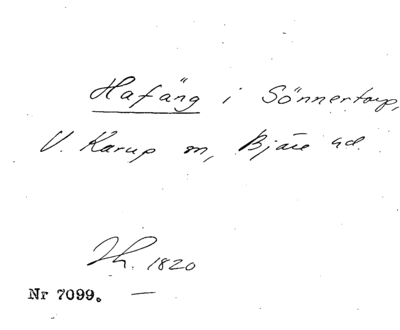 Hafäng i Sönnertorp,
V. Karup sn, Bjäre hd.
Jh. 1820
Nr 7099. —